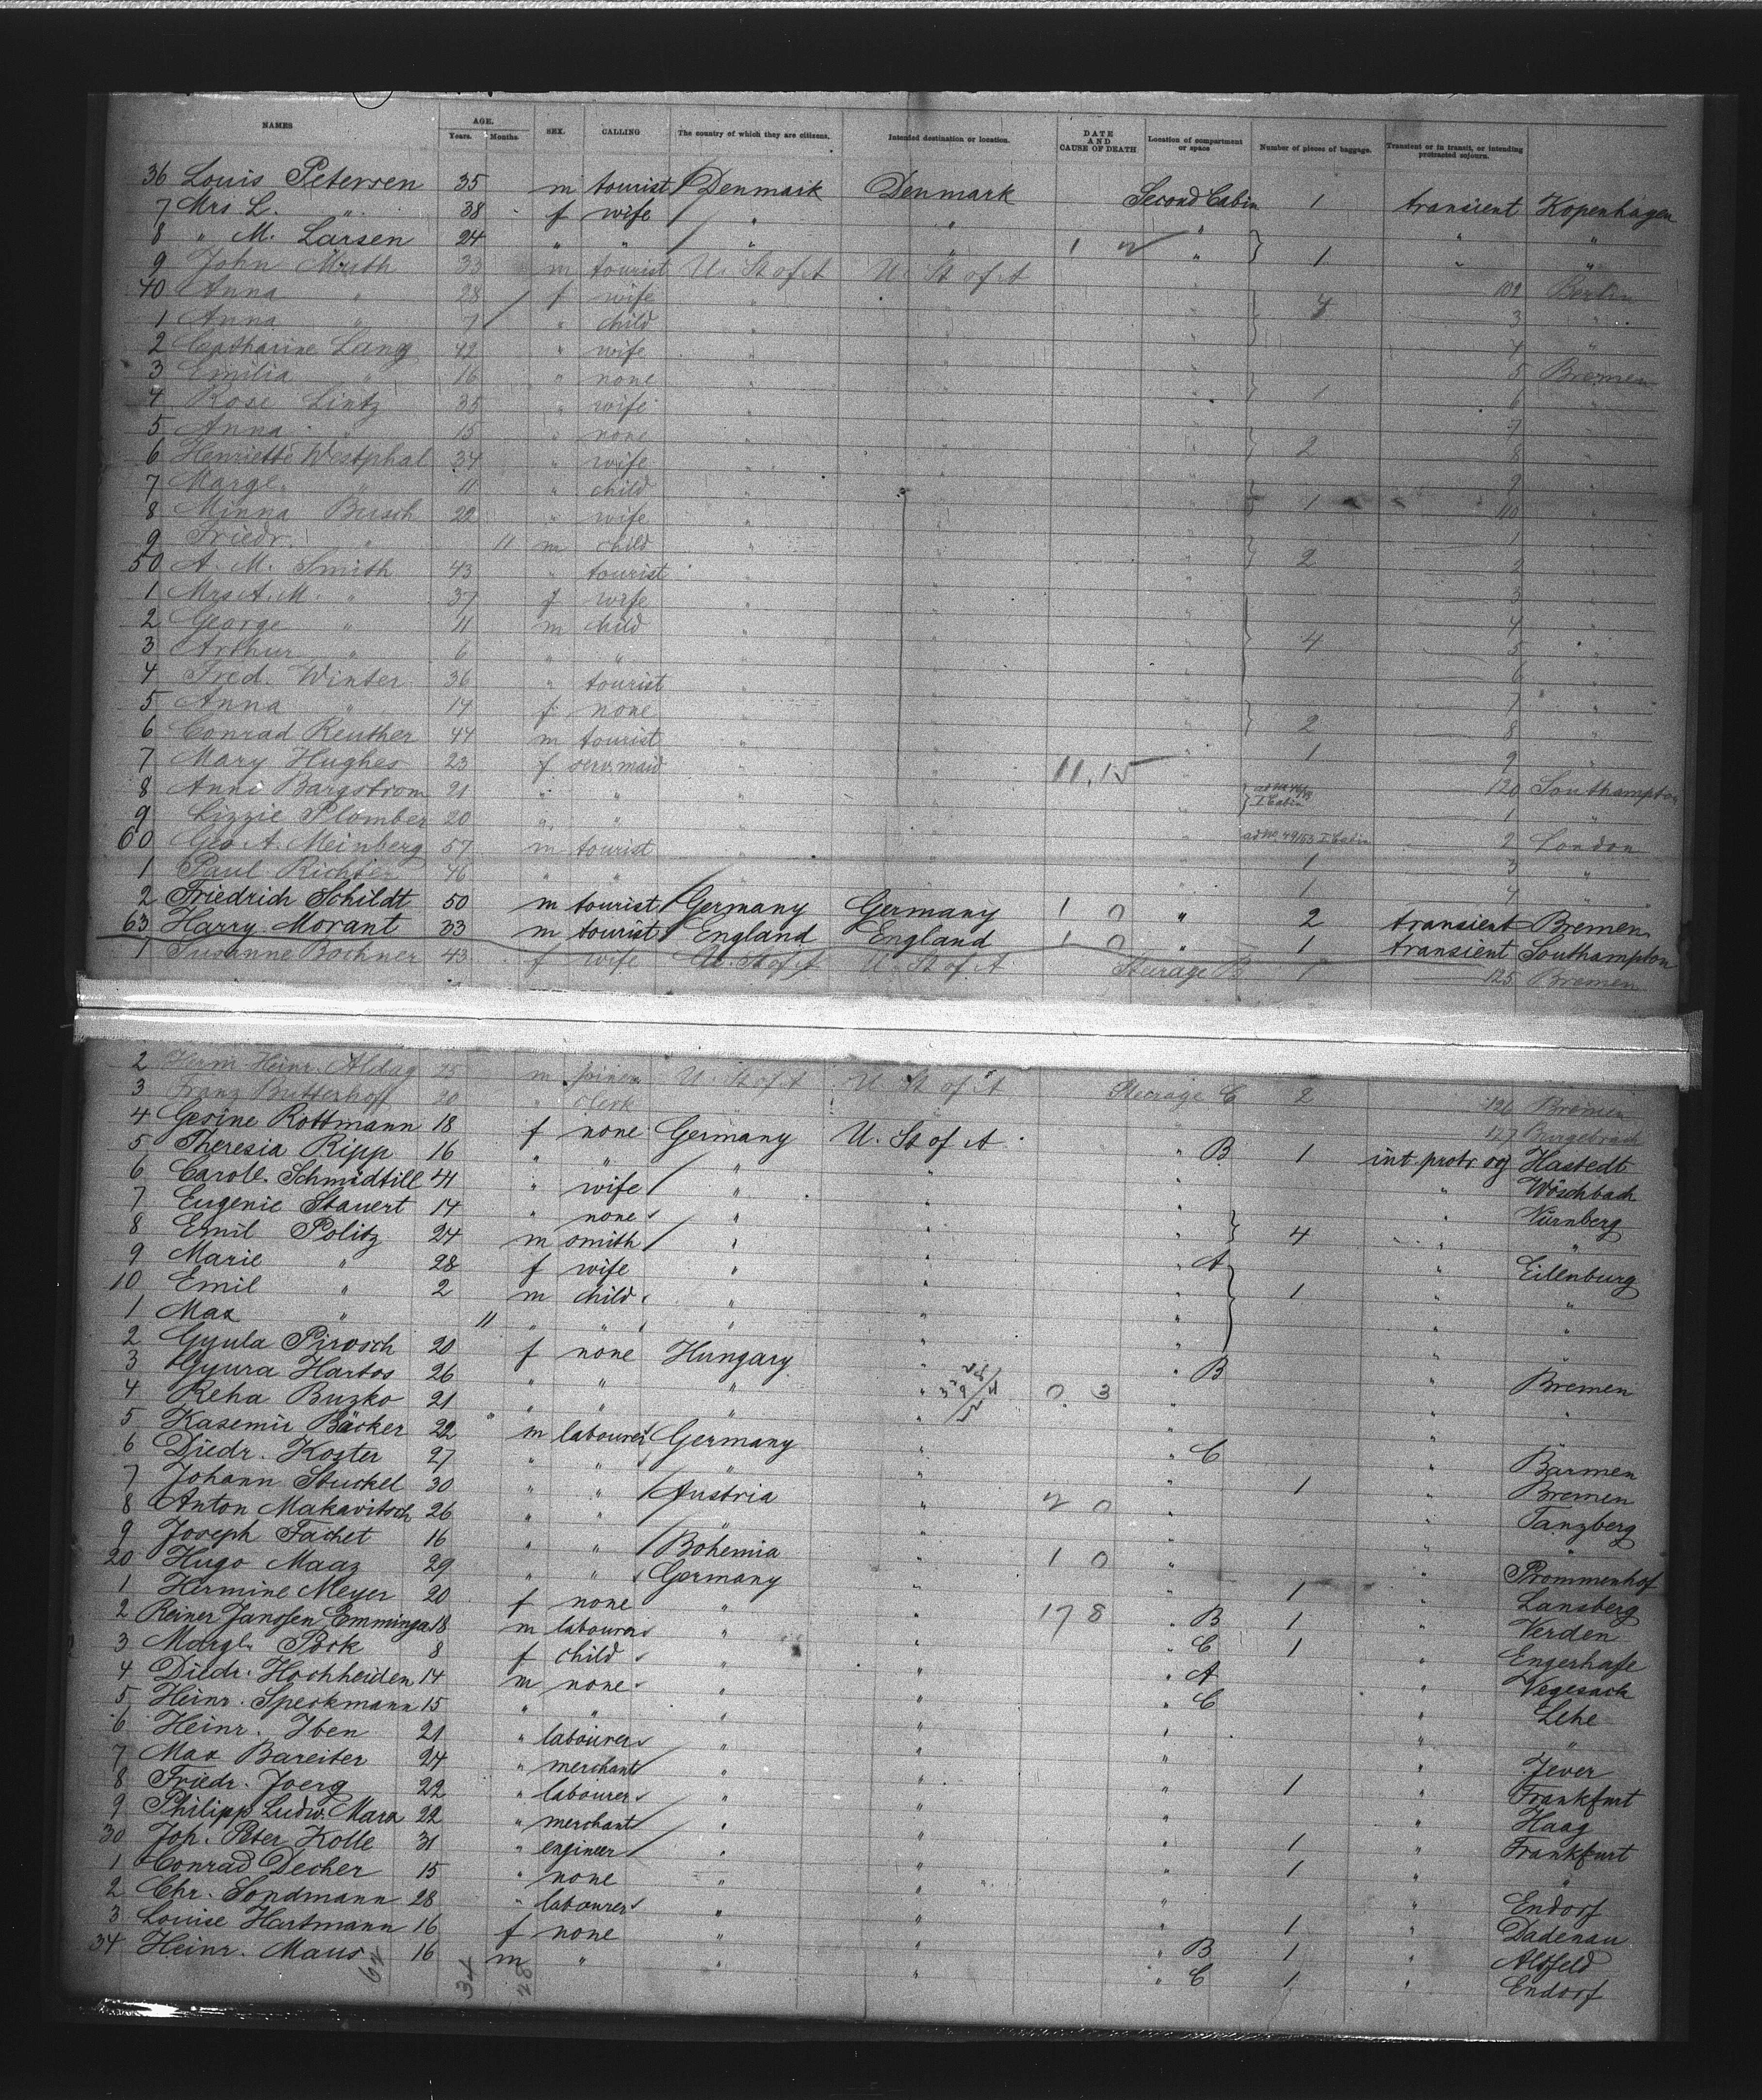 NAMES AGE. Years. Months SEX. CALLING The country of which they are citizens. Intended destination or location. DATE AND CAUSE OF DEATH Location of compartment or space Number of pieces of baggage. Transient or in transit, or intending protracted sojourn.
36 Louis Petersen 35 m tourist Denmark Denmark Second Cabin 1 transient Kopenhagen
7 Mrs L. " 38 f wife " " " " "
8 " M. Larsen 24 " " " " 1 " 1 " "
9 John Muth 33 m tourist U. St of A U. St of A " 109 Berlin
40 Anna " 28 f wife " " " 4 3 "
1 Anna " 7 " child " " " 4 "
2 Catharine Lang 42 " wife " " " 5 Bremen
3 Emilia " 16 " none " " " 1 6 "
4 Rose Lintz 35 " wife " " " 7 "
5 Anna " 15 " none " " " 2 8 "
6 Henriette Westphal 34 " wife " " " 9 "
7 Marge. " 11 " child " " " 1 110 "
8 Minna Busch 22 " wife " " " 1 "
9 Friedr. " 11 m child " " " 2 2 "
50 A. M. Smith 43 " tourist " " " 3 "
1 Mrs A. M. " 37 f wife " " " 4 "
2 George " 11 m child " " " 4 5 "
3 Arthur " 6 " " " " " 6 "
4 Fred. Winter 36 " tourist " " " 7 "
5 Anna " 14 f none " " " 2 8 "
6 Conrad Reuther 44 m tourist " " " 1 9 "
7 Mary Hughes 23 f serv. maid " " 11,15 " I Cabin 120 Southampton
8 Anni Bargstrom 21 " " " " " 1 "
9 Lizzie Plomber 20 " " " " " ad No 49/53 I Cabin 2 London
60 Geo A. Meinberg 57 m tourist " " " 1 3 "
1 Paul Richter 46 " " " " " 1 4 "
2 Friedrich Schildt 50 m tourist Germany Germany 1 0 " 2 transient Bremen
63 Harry Morant 33 m tourist England England 1 0 " 1 transient Southampton
1 Susanne Bochner 43 f wife U. St of A U. St of A Steerage B 1 125 Bremen
2 Herm. Heinr. Aldag 25 m joiner U. St of A U. St of A Steerage C 2 126 Bremen
3 Franz Butterhoff 20 " clerk " " 127 Burgebrach
4 Gesine Rottmann 18 f none Germany U. St of A " B 1 int. protr. soj Hastedt
5 Theresia Ripp 16 " " " " " " Wöschbach
6 Carol. Schmidtill 41 " wife " " " " Nürnberg
7 Eugenie Stauert 14 " none " " " 4 " "
8 Emil Politz 24 m smith " " " A " Eilenburg
9 Marie " 28 f wife " " " 1 " "
10 Emil " 2 m child " " " " "
1 Max " 11 " " " " " " "
2 Gyula Pirosch 20 f none Hungary " " B " Bremen
3 Gyura Hartos 26 " " " " 0 3 " " "
4 Reha Buzko 21 " " " " " " "
5 Kasemir Bäcker 22 m labourer Germany " " C " Barmen
6 Diedr. Koster 27 " " " " " 1 " Bremen
7 Johann Stuckel 30 " " Austria " 2 0 " " Tanzberg
8 Anton Makavitsch 26 " " " " " " "
9 Joseph Fachet 16 " " Bohemia " 1 0 " " Prommenhof
20 Hugo Maaz 29 " " Germany " " 1 " Lansberg
1 Hermine Meyer 20 f none " " 178 " B 1 " Verden
2 Reiner Janssen Emminga 18 m labourer " " " C 1 " Engerhafe
3 Margl. Bök 8 f child " " " A " Vegesack
4 Diedr. Hochheiden 14 m none " " " C " Lehe
5 Heinr. Speckmann 15 " " " " " " "
6 Heinr. Iben 21 " labourer " " " " Jever
7 Max Bareiter 24 " merchant " " " 1 " Frankfurt
8 Friedr. Joerg 22 " labourer " " " " Haag
9 Philipp Ludw. Marx 22 " merchant " " " 1 " Frankfurt
30 Joh. Peter Kolle 31 " engineer " " " 1 " "
1 Conrad Decher 15 " none " " " " Endorf
2 Chr. Sondmann 28 " labourer " " " 1 " Dadenau
3 Louise Hartmann 16 f none " " " B 1 " Alsfeld
34 Heinr. Maus 16 m " " " " C 1 " Endorf
62 34 28